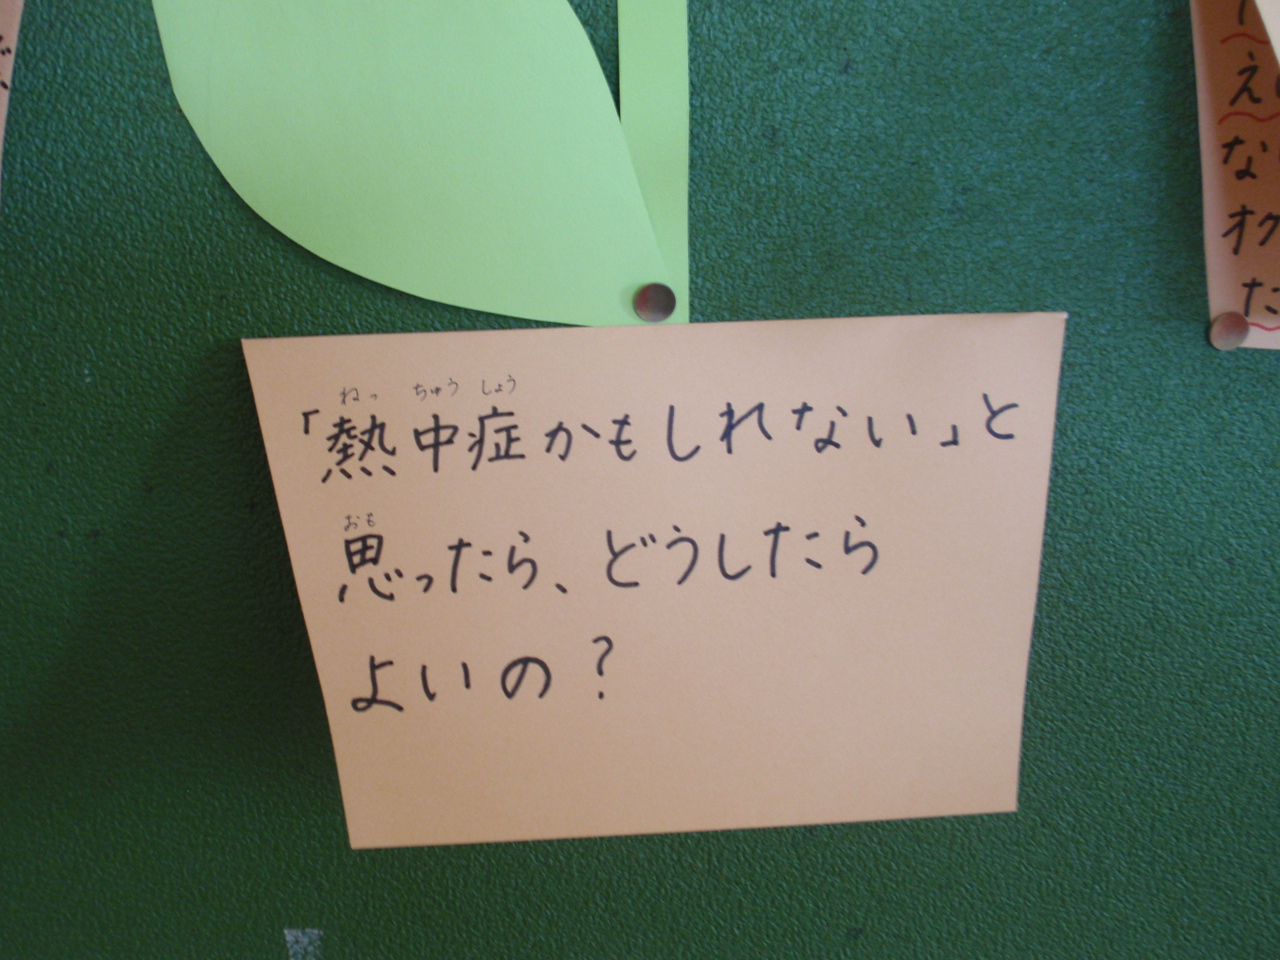 ねっ ちゅう しょう
「熱中症かもしれない」と
おも
思ったら、どうしたら
よいの?
え
な
オク
た